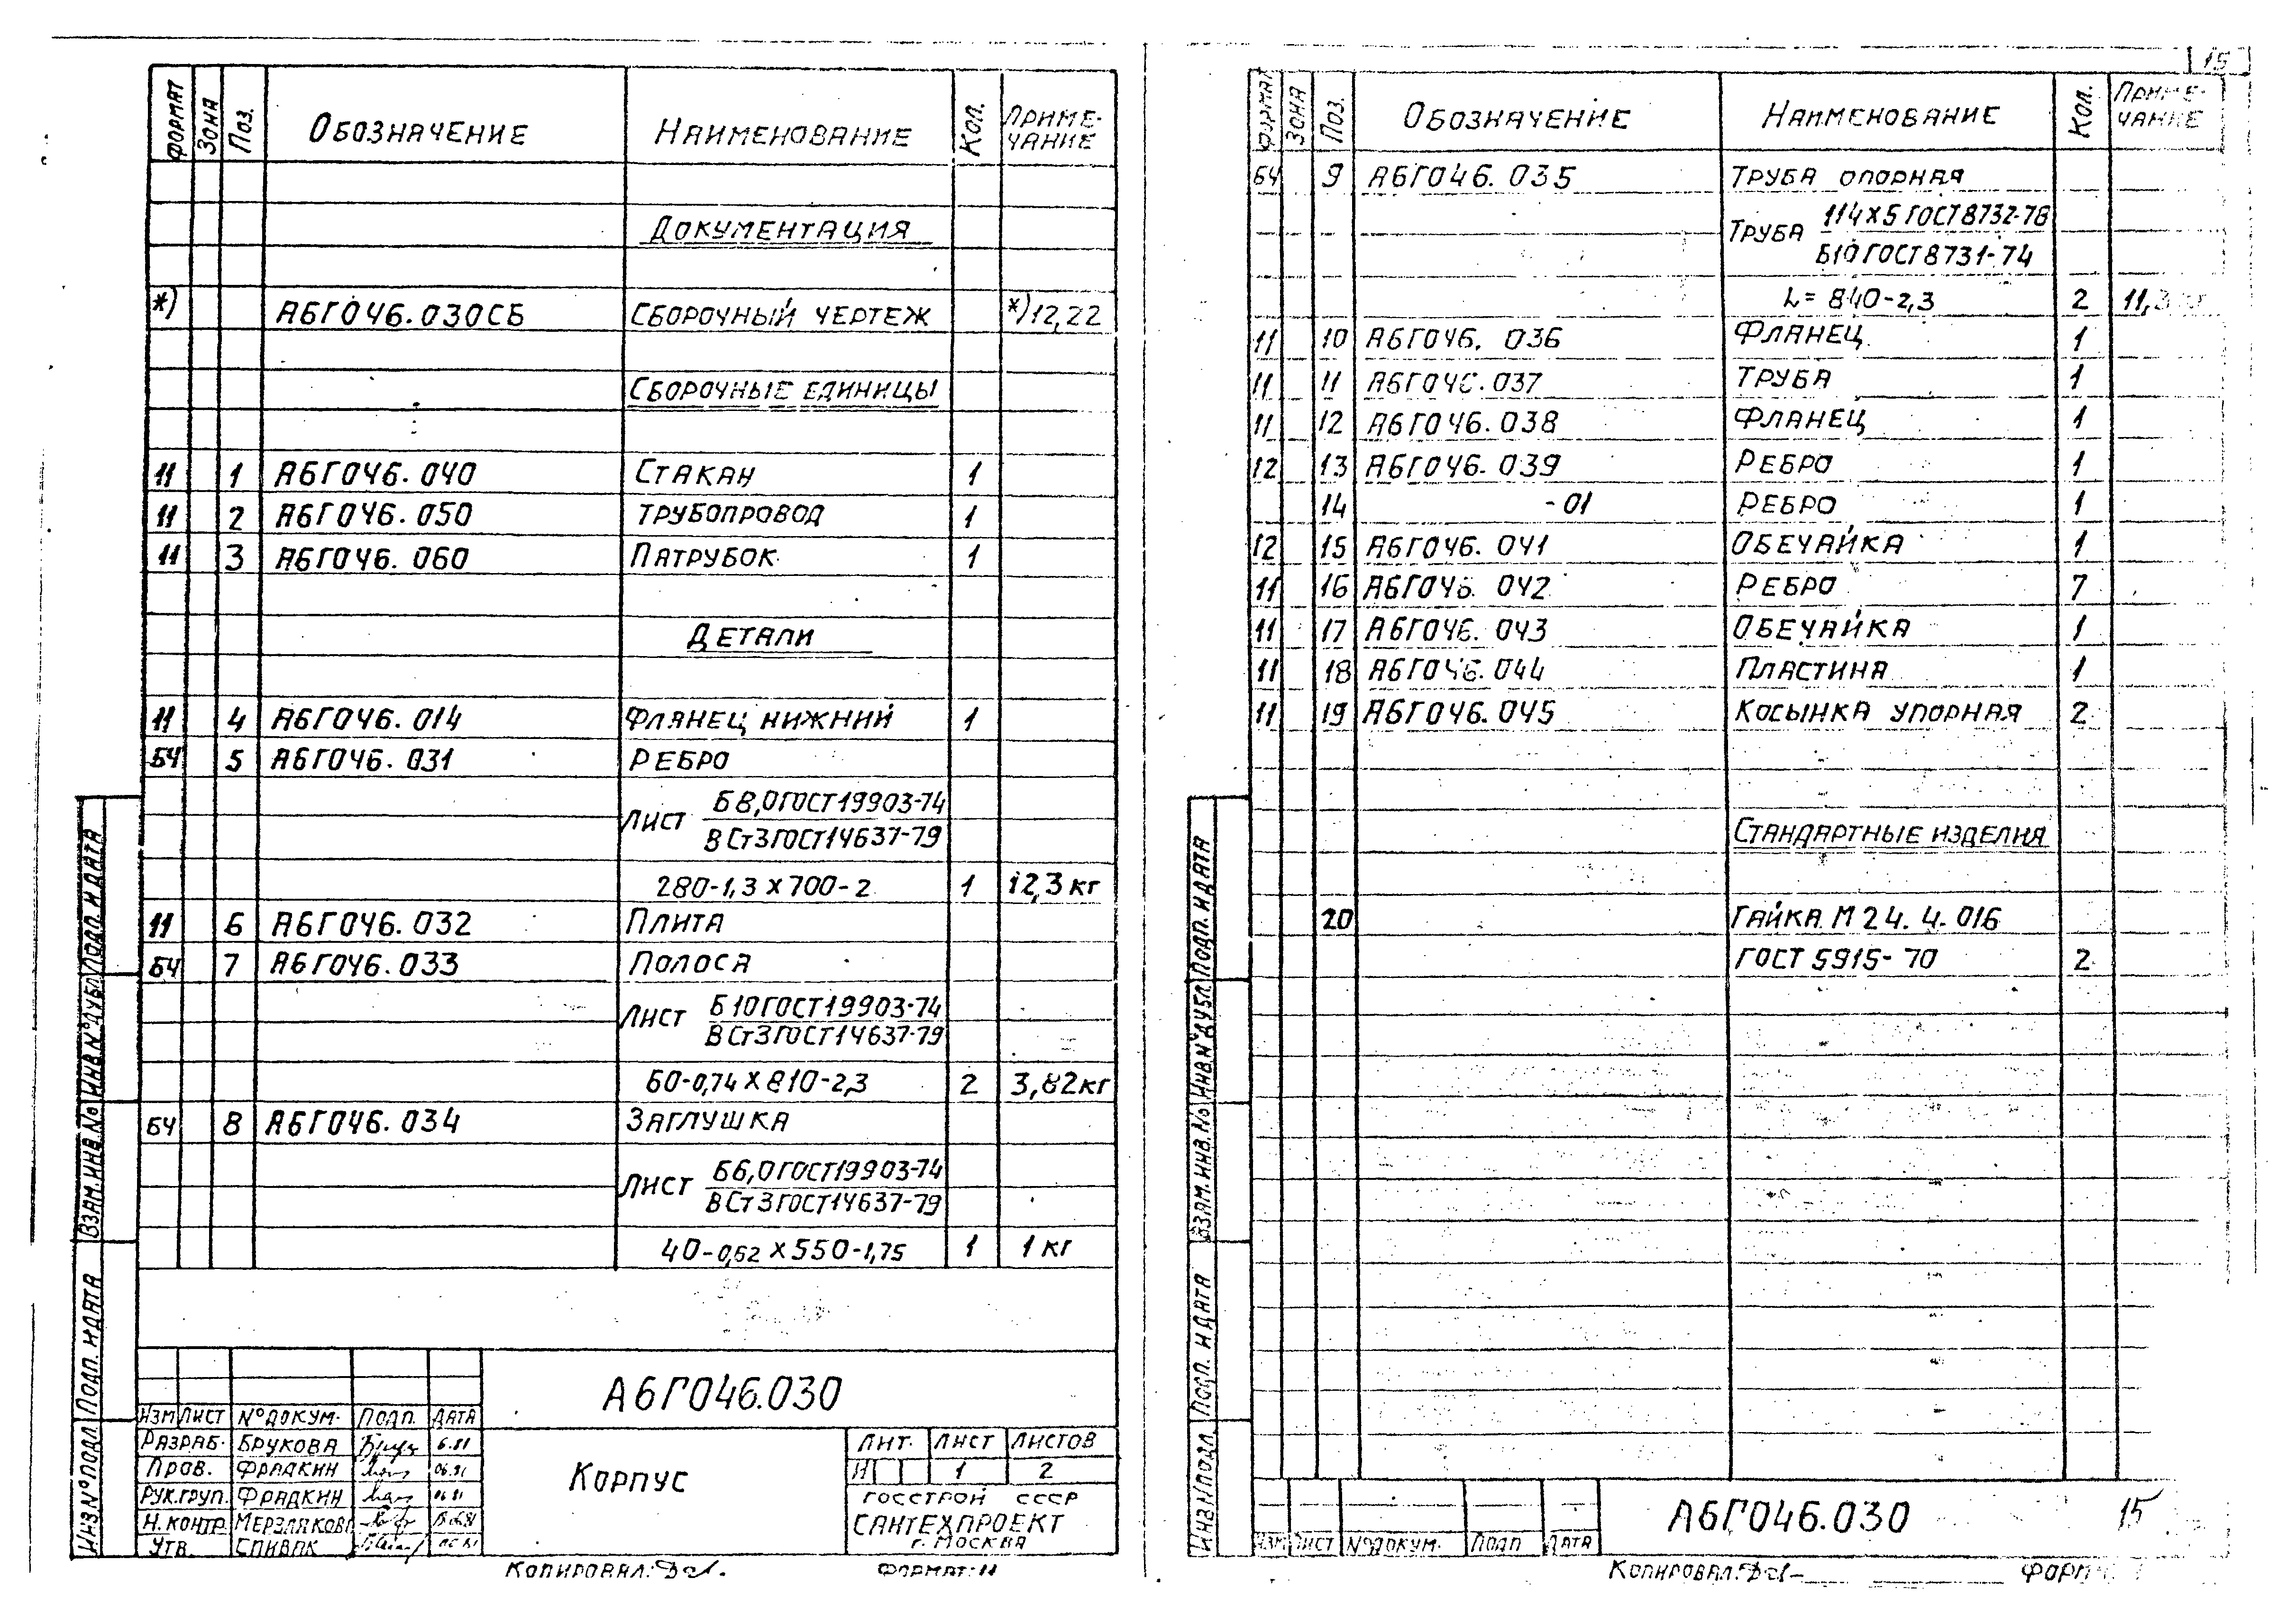 Формат Зона Поз. Обозначение Наименование Кол. Приме-
чание
Документация
*) А6Г046.030СБ Сборочный чертеж *)12,22
Сборочные единицы
11 1 А6Г046.040 Стакан 1
11 2 А6Г046.050 Трубопровод 1
11 3 А6Г046.060 Патрубок 1
Детали
11 4 А6Г046.014 Фланец нижний 1
БЧ 5 А6Г046.031 Ребро
Лист Б8,0 ГОСТ 19903-74
ВСт3 ГОСТ 14637-79
280-1,3 х 700-2 1 12,3 кг
11 6 А6Г046.032 Плита
БЧ 7 А6Г046.033 Полоса
Лист Б10 ГОСТ 19903-74
ВСт3 ГОСТ 14637-79
60-0,74 х 810-2,3 2 3,82 кг
БЧ 8 А6Г046.034 Заглушка
Лист Б6,0 ГОСТ 19903-74
ВСт3 ГОСТ 14637-79
40-0,62 х 550-1,75 1 1 кг
А6Г046.030
Изм Лист № докум. Подп. Дата
Разраб. Брукова 6.81
Пров. Фрадкин
Рук.груп. Фрадкин
Н.контр.
Утв. Спивак
Корпус
Лит. Лист Листов
И 1 2
Госстрой СССР
Сантехпроект
г. Москва
Копировал: Формат: 11
Инв № подл Подп. и дата Взам. инв. № Инв № дубл Подп. и дата
15
Формат Зона Поз. Обозначение Наименование Кол. Приме-
чание
БЧ 9 А6Г046.035 Труба опорная
Труба 114х5 ГОСТ 8732-78
Б10 ГОСТ 8731-74
L= 840-2,3 2
11 10 А6Г046.036 Фланец 1
11 11 А6Г046.037 Труба 1
11 12 А6Г046.038 Фланец 1
12 13 А6Г046.039 Ребро 1
14 -01 Ребро 1
12 15 А6Г046.041 Обечайка 1
11 16 А6Г046.042 Ребро 7
11 17 А6Г046.043 Обечайка 1
11 18 А6Г046.044 Пластина 1
11 19 А6Г046.045 Косынка упорная 2
Стандартные изделия
20 Гайка М24.4.016
ГОСТ 5915-70 2
А6Г046.030 15
Изм Лист № докум. Подп Дата
Копировал:
Инв № подл Подп. и дата Взам. инв. № Инв № дубл. Подп. и дата